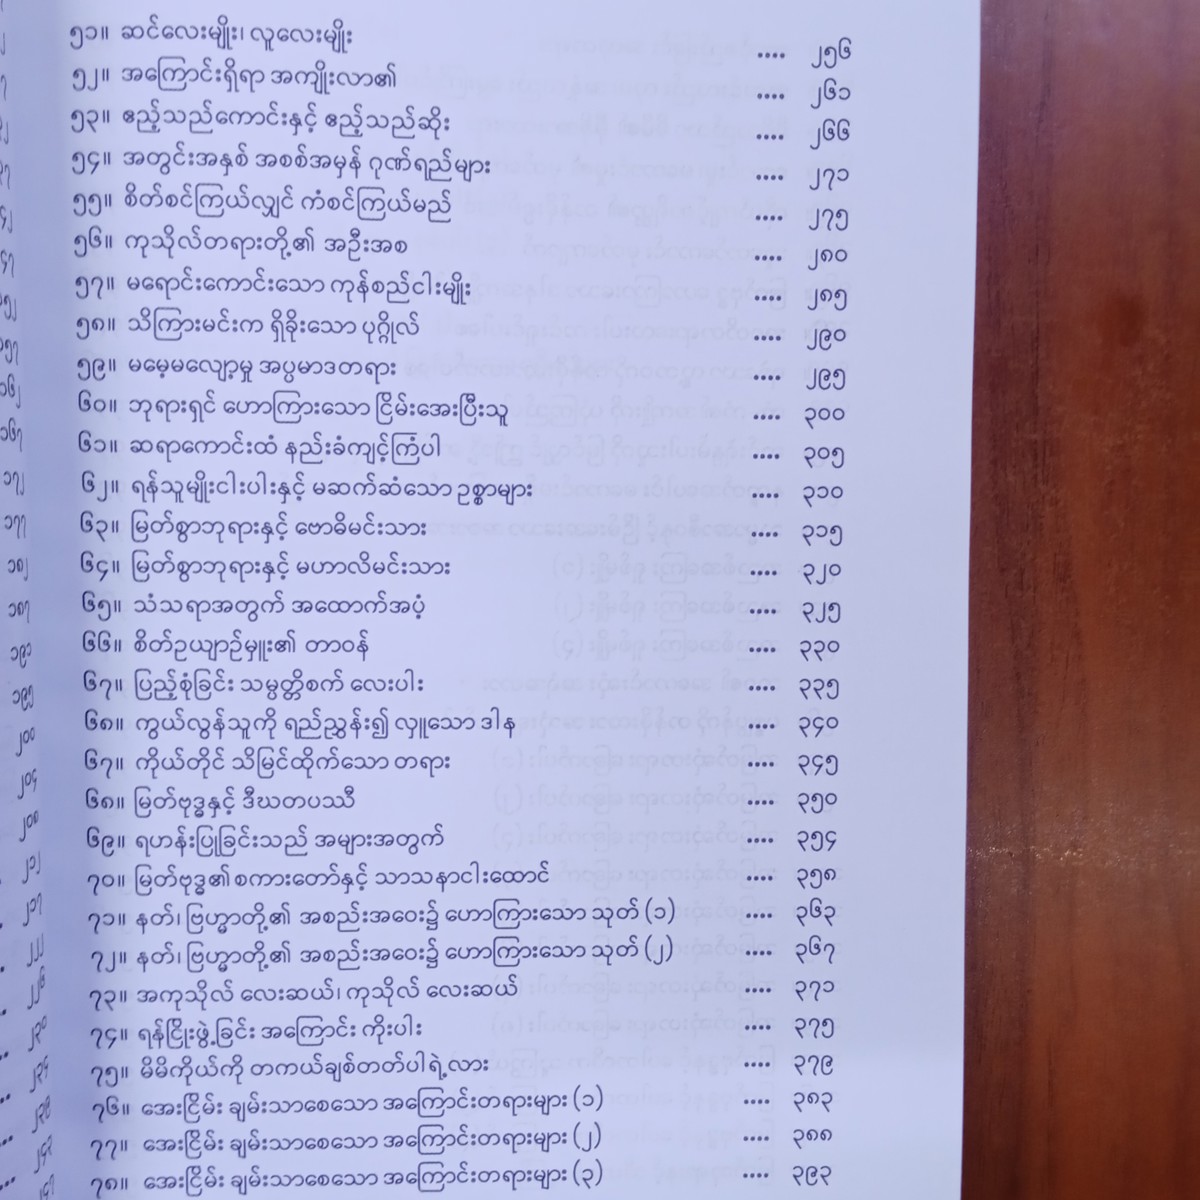 ၅၁။ ဆင်လေးမျိုး၊ လူလေးမျိုး .... ၂၅၆
၅၂။ အကြောင်းရှိရာ အကျိုးလာ၏ .... ၂၆၁
၅၃။ ဧည့်သည်ကောင်းနှင့် ဧည့်သည်ဆိုး .... ၂၆၆
၅၄။ အတွင်းအနှစ် အစစ်အမှန် ဂုဏ်ရည်များ .... ၂၇၁
၅၅။ စိတ်စင်ကြယ်လျှင် ကံစင်ကြယ်မည် .... ၂၇၅
၅၆။ ကုသိုလ်တရားတို့၏ အဦးအစ .... ၂၈၀
၅၇။ မရောင်းကောင်းသော ကုန်စည်ငါးမျိုး .... ၂၈၅
၅၈။ သိကြားမင်းက ရှိခိုးသော ပုဂ္ဂိုလ် .... ၂၉၀
၅၉။ မမေ့မလျော့မှု အပ္ပမာဒတရား .... ၂၉၅
၆၀။ ဘုရားရှင် ဟောကြားသော ငြိမ်းအေးပြီးသူ .... ၃၀၀
၆၁။ ဆရာကောင်းထံ နည်းခံကျင့်ကြံပါ .... ၃၀၅
၆၂။ ရန်သူမျိုးငါးပါးနှင့် မဆက်ဆံသော ဥစ္စာများ .... ၃၁၀
၆၃။ မြတ်စွာဘုရားနှင့် ဗောဓိမင်းသား .... ၃၁၅
၆၄။ မြတ်စွာဘုရားနှင့် မဟာလိမင်းသား .... ၃၂၀
၆၅။ သံသရာအတွက် အထောက်အပံ့ .... ၃၂၅
၆၆။ စိတ်ဥယျာဉ်မှူး၏ တာဝန် .... ၃၃၀
၆၇။ ပြည့်စုံခြင်း သမ္ပတ္တိစက် လေးပါး .... ၃၃၅
၆၈။ ကွယ်လွန်သူကို ရည်ညွှန်း၍ လှူသော ဒါန .... ၃၄၀
၆၇။ ကိုယ်တိုင် သိမြင်ထိုက်သော တရား .... ၃၄၅
၆၈။ မြတ်ဗုဒ္ဓနှင့် ဒီဃတပဿီ .... ၃၅၀
၆၉။ ရဟန်းပြုခြင်းသည် အများအတွက် .... ၃၅၄
၇၀။ မြတ်ဗုဒ္ဓ၏ စကားတော်နှင့် သာသနာငါးထောင် .... ၃၅၈
၇၁။ နတ်၊ ဗြဟ္မာတို့၏ အစည်းအဝေး၌ ဟောကြားသော သုတ် (၁) .... ၃၆၃
၇၂။ နတ်၊ ဗြဟ္မာတို့၏ အစည်းအဝေး၌ ဟောကြားသော သုတ် (၂) .... ၃၆၇
၇၃။ အကုသိုလ် လေးဆယ်၊ ကုသိုလ် လေးဆယ် .... ၃၇၁
၇၄။ ရန်ငြိုးဖွဲ့ခြင်း အကြောင်း ကိုးပါး .... ၃၇၅
၇၅။ မိမိကိုယ်ကို တကယ်ချစ်တတ်ပါရဲ့လား .... ၃၇၉
၇၆။ အေးငြိမ်း ချမ်းသာစေသော အကြောင်းတရားများ (၁) .... ၃၈၃
၇၇။ အေးငြိမ်း ချမ်းသာစေသော အကြောင်းတရားများ (၂) .... ၃၈၈
၇၈။ အေးငြိမ်း ချမ်းသာစေသော အကြောင်းတရားများ (၃) .... ၃၉၃
၁၆၂
၁၆၇
၁၇၂
၁၇၇
၁၈၂
၁၈၇
၁၉၁
၁၉၅
၂၀၀
၂၀၄
၂၀၈
၂၁၂
၂၁၇
၂၂၂
၂၂၆
၂၃၀
၂၃၄
၂၃၈
၂၄၂